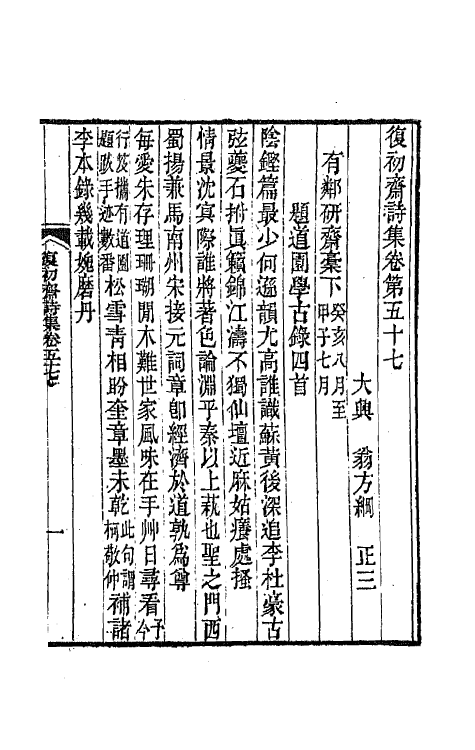 復初齋詩集卷第五十七
大興 翁方綱 正三
有鄰研齋稾下 癸亥八月至 甲子七月
題道園學古錄四首
陰鏗篇最少何遜韻尤高誰識蘇黄後深追李杜豪古
弦夔石拊眞籟錦江濤不獨仙壇近麻姑癢處搔
情景沈冥際誰將著色論淵乎秦以上萟也聖之門西
蜀揚兼馬南州宋接元詞章卽經濟於道孰爲尊
每愛朱存理珊瑚閒木難世家風味在手艸日尋看予今
行笈攜有道園題跋手迹數番松雪青相盼奎章墨未乾此句謂柯敬仲補諸
李本錄幾載娩磨丹
復初齋詩集卷五十七 一